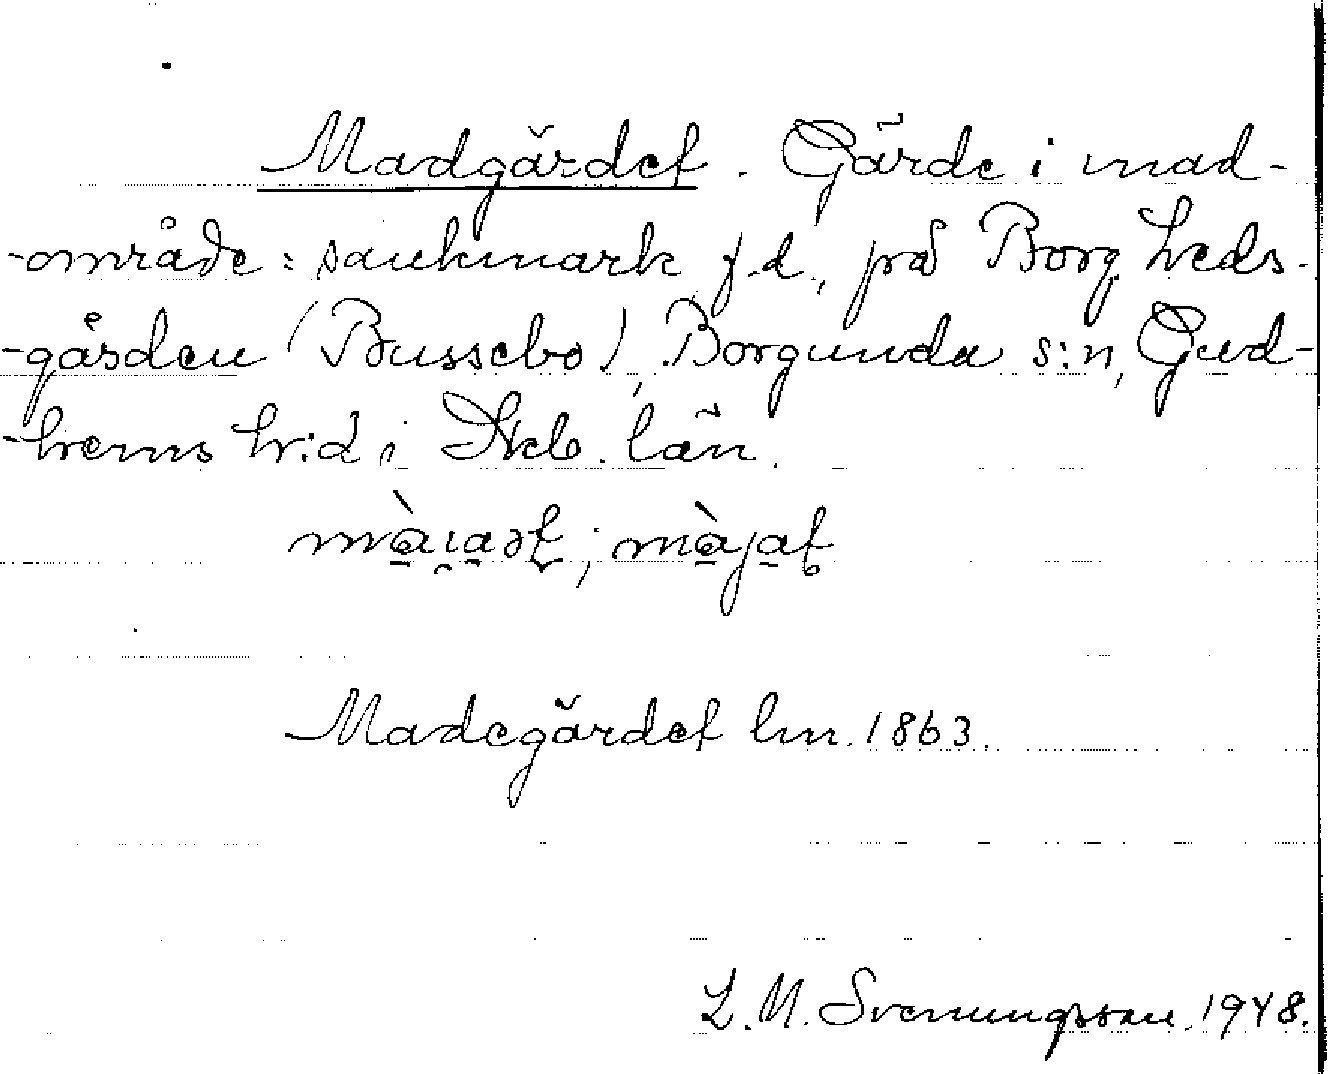 Madgärdet. Gärde i mad-
-område: sankmark f.d., på Borg Heds-
-gården (Bussebo), Borgunda s:n, Gud-
-hems h:d i Skb. län.
Madegärdet lm. 1863.
L. M. Svenungsson 1948.